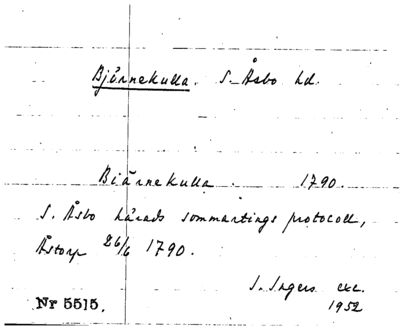 Bjärnekulla. S. Åsbo hd.
Biärnekulla. 1790.
S. Åsbo härads sommartings protocoll,
Åstorp 26/6 1790.
I. Ingers exc.
1952
Nr 5515.